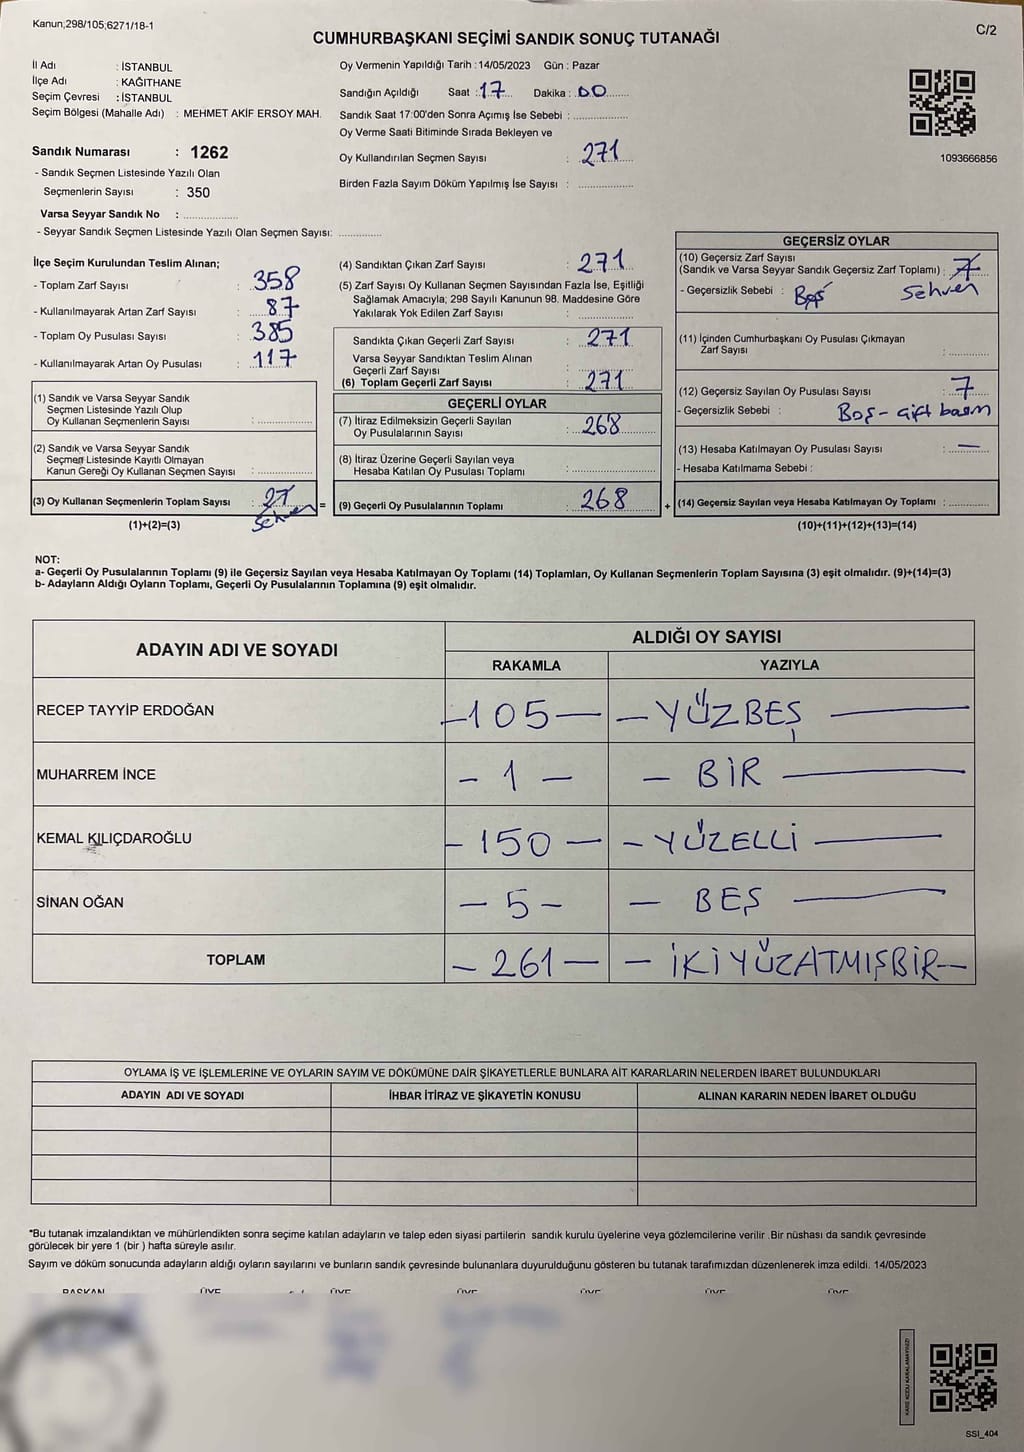 Kanun;298/105;6271/18-1
C/2
CUMHURBAŞKANI SEÇİMİ SANDIK SONUÇ TUTANAĞI
İl Adı : İSTANBUL
İlçe Adı : KAĞITHANE
Seçim Çevresi : İSTANBUL
Seçim Bölgesi (Mahalle Adı) : MEHMET AKİF ERSOY MAH.
Sandık Numarası : 1262
- Sandık Seçmen Listesinde Yazılı Olan
Seçmenlerin Sayısı : 350
Varsa Seyyar Sandık No : ..................
- Seyyar Sandık Seçmen Listesinde Yazılı Olan Seçmen Sayısı: ..............
Oy Vermenin Yapıldığı Tarih : 14/05/2023 Gün : Pazar
Sandığın Açıldığı Saat : 17 Dakika : 00
Sandık Saat 17:00'den Sonra Açımış İse Sebebi : ..................
Oy Verme Saati Bitiminde Sırada Bekleyen ve
Oy Kullandırılan Seçmen Sayısı : 271
Birden Fazla Sayım Döküm Yapılmış İse Sayısı : ..................
1093666856
İlçe Seçim Kurulundan Teslim Alınan;
- Toplam Zarf Sayısı : 358
- Kullanılmayarak Artan Zarf Sayısı : 87
- Toplam Oy Pusulası Sayısı : 385
- Kullanılmayarak Artan Oy Pusulası : 117
(1) Sandık ve Varsa Seyyar Sandık
Seçmen Listesinde Yazılı Olup
Oy Kullanan Seçmenlerin Sayısı : ..................
(2) Sandık ve Varsa Seyyar Sandık
Seçmen Listesinde Kayıtlı Olmayan
Kanun Gereği Oy Kullanan Seçmen Sayısı : ..................
(3) Oy Kullanan Seçmenlerin Toplam Sayısı : 27
Sehven
=
(1)+(2)=(3)
(4) Sandıktan Çıkan Zarf Sayısı : 271
(5) Zarf Sayısı Oy Kullanan Seçmen Sayısından Fazla İse, Eşitliği
Sağlamak Amacıyla; 298 Sayılı Kanunun 98. Maddesine Göre
Yakılarak Yok Edilen Zarf Sayısı : ..................
Sandıkta Çıkan Geçerli Zarf Sayısı : 271
Varsa Seyyar Sandıktan Teslim Alınan
Geçerli Zarf Sayısı : ..................
(6) Toplam Geçerli Zarf Sayısı : 271
GEÇERLİ OYLAR
(7) İtiraz Edilmeksizin Geçerli Sayılan
Oy Pusulalarının Sayısı : 268
(8) İtiraz Üzerine Geçerli Sayılan veya
Hesaba Katılan Oy Pusulası Toplamı : ..................
(9) Geçerli Oy Pusulalarının Toplamı : 268
+
GEÇERSİZ OYLAR
(10) Geçersiz Zarf Sayısı
(Sandık ve Varsa Seyyar Sandık Geçersiz Zarf Toplamı) : 7
- Geçersizlik Sebebi : Boş Sehven
(11) İçinden Cumhurbaşkanı Oy Pusulası Çıkmayan
Zarf Sayısı : ..............
(12) Geçersiz Sayılan Oy Pusulası Sayısı : 7
- Geçersizlik Sebebi : Boş - çift basım
(13) Hesaba Katılmayan Oy Pusulası Sayısı : —
- Hesaba Katılmama Sebebi :
(14) Geçersiz Sayılan veya Hesaba Katılmayan Oy Toplamı : ..............
(10)+(11)+(12)+(13)=(14)
NOT:
a- Geçerli Oy Pusulalarının Toplamı (9) ile Geçersiz Sayılan veya Hesaba Katılmayan Oy Toplamı (14) Toplamları, Oy Kullanan Seçmenlerin Toplam Sayısına (3) eşit olmalıdır. (9)+(14)=(3)
b- Adayların Aldığı Oyların Toplamı, Geçerli Oy Pusulalarının Toplamına (9) eşit olmalıdır.
ADAYIN ADI VE SOYADI
ALDIĞI OY SAYISI
RAKAMLA YAZIYLA
RECEP TAYYİP ERDOĞAN -105- - YÜZBEŞ -
MUHARREM İNCE - 1 - - BİR -
KEMAL KILIÇDAROĞLU - 150 - - YÜZELLİ -
SİNAN OĞAN - 5 - - BEŞ -
TOPLAM - 261 - - İKİYÜZATMIŞBİR -
OYLAMA İŞ VE İŞLEMLERİNE VE OYLARIN SAYIM VE DÖKÜMÜNE DAİR ŞİKAYETLERLE BUNLARA AİT KARARLARIN NELERDEN İBARET BULUNDUKLARI
ADAYIN ADI VE SOYADI İHBAR İTİRAZ VE ŞİKAYETİN KONUSU ALINAN KARARIN NEDEN İBARET OLDUĞU
*Bu tutanak imzalandıktan ve mühürlendikten sonra seçime katılan adayların ve talep eden siyasi partilerin sandık kurulu üyelerine veya gözlemcilerine verilir .Bir nüshası da sandık çevresinde
görülecek bir yere 1 (bir ) hafta süreyle asılır.
Sayım ve döküm sonucunda adayların aldığı oyların sayılarını ve bunların sandık çevresinde bulunanlara duyurulduğunu gösteren bu tutanak tarafımızdan düzenlenerek imza edildi. 14/05/2023
BAŞKAN ÜYE ÜYE ÜYE ÜYE ÜYE ÜYE
KARE KODU KARALAMAYINIZ!
SSİ_404